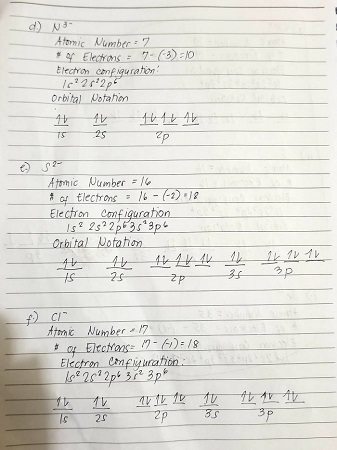 d.) N³⁻
Atomic Number = 7
# of Electrons = 7-(-3)=10
Electron configuration:
1s² 2s² 2p⁶
Orbital Notation
1l 1l 1l 1l 1l
1s 2s 2p
e.) S²⁻
Atomic Number = 16
# of Electrons = 16-(-2)=18
Electron Configuration
1s² 2s² 2p⁶ 3s² 3p⁶
Orbital Notation
1l 1l 1l 1l 1l 1l 1l 1l 1l
1s 2s 2p 3s 3p
f.) Cl⁻
Atomic Number = 17
# of Electrons = 17-(-1)=18
Electron Configuration:
1s² 2s² 2p⁶ 3s² 3p⁶
1l 1l 1l 1l 1l 1l 1l 1l 1l
1s 2s 2p 3s 3p